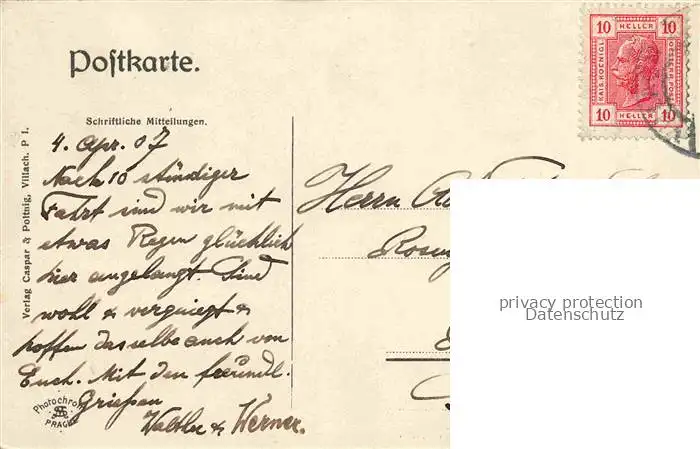 Postkarte.
Schriftliche Mitteilungen.
4. Apr. 07
Nach 10 stündiger
Fahrt sind wir mit
etwas Regen glücklich
hier angelangt. Sind
wohl & vergnügt &
hoffen dasselbe auch von
Euch. Mit den freundl.
Grüßen
Walther & Werner.
Verlag Caspar & Pottnig, Villach. P I.
Photochrom
PRAGUE
Herrn
10 HELLER 10
KAIS. KOENIGL.
OESTERR. POST
10 HELLER 10
privacy protection
Datenschutz